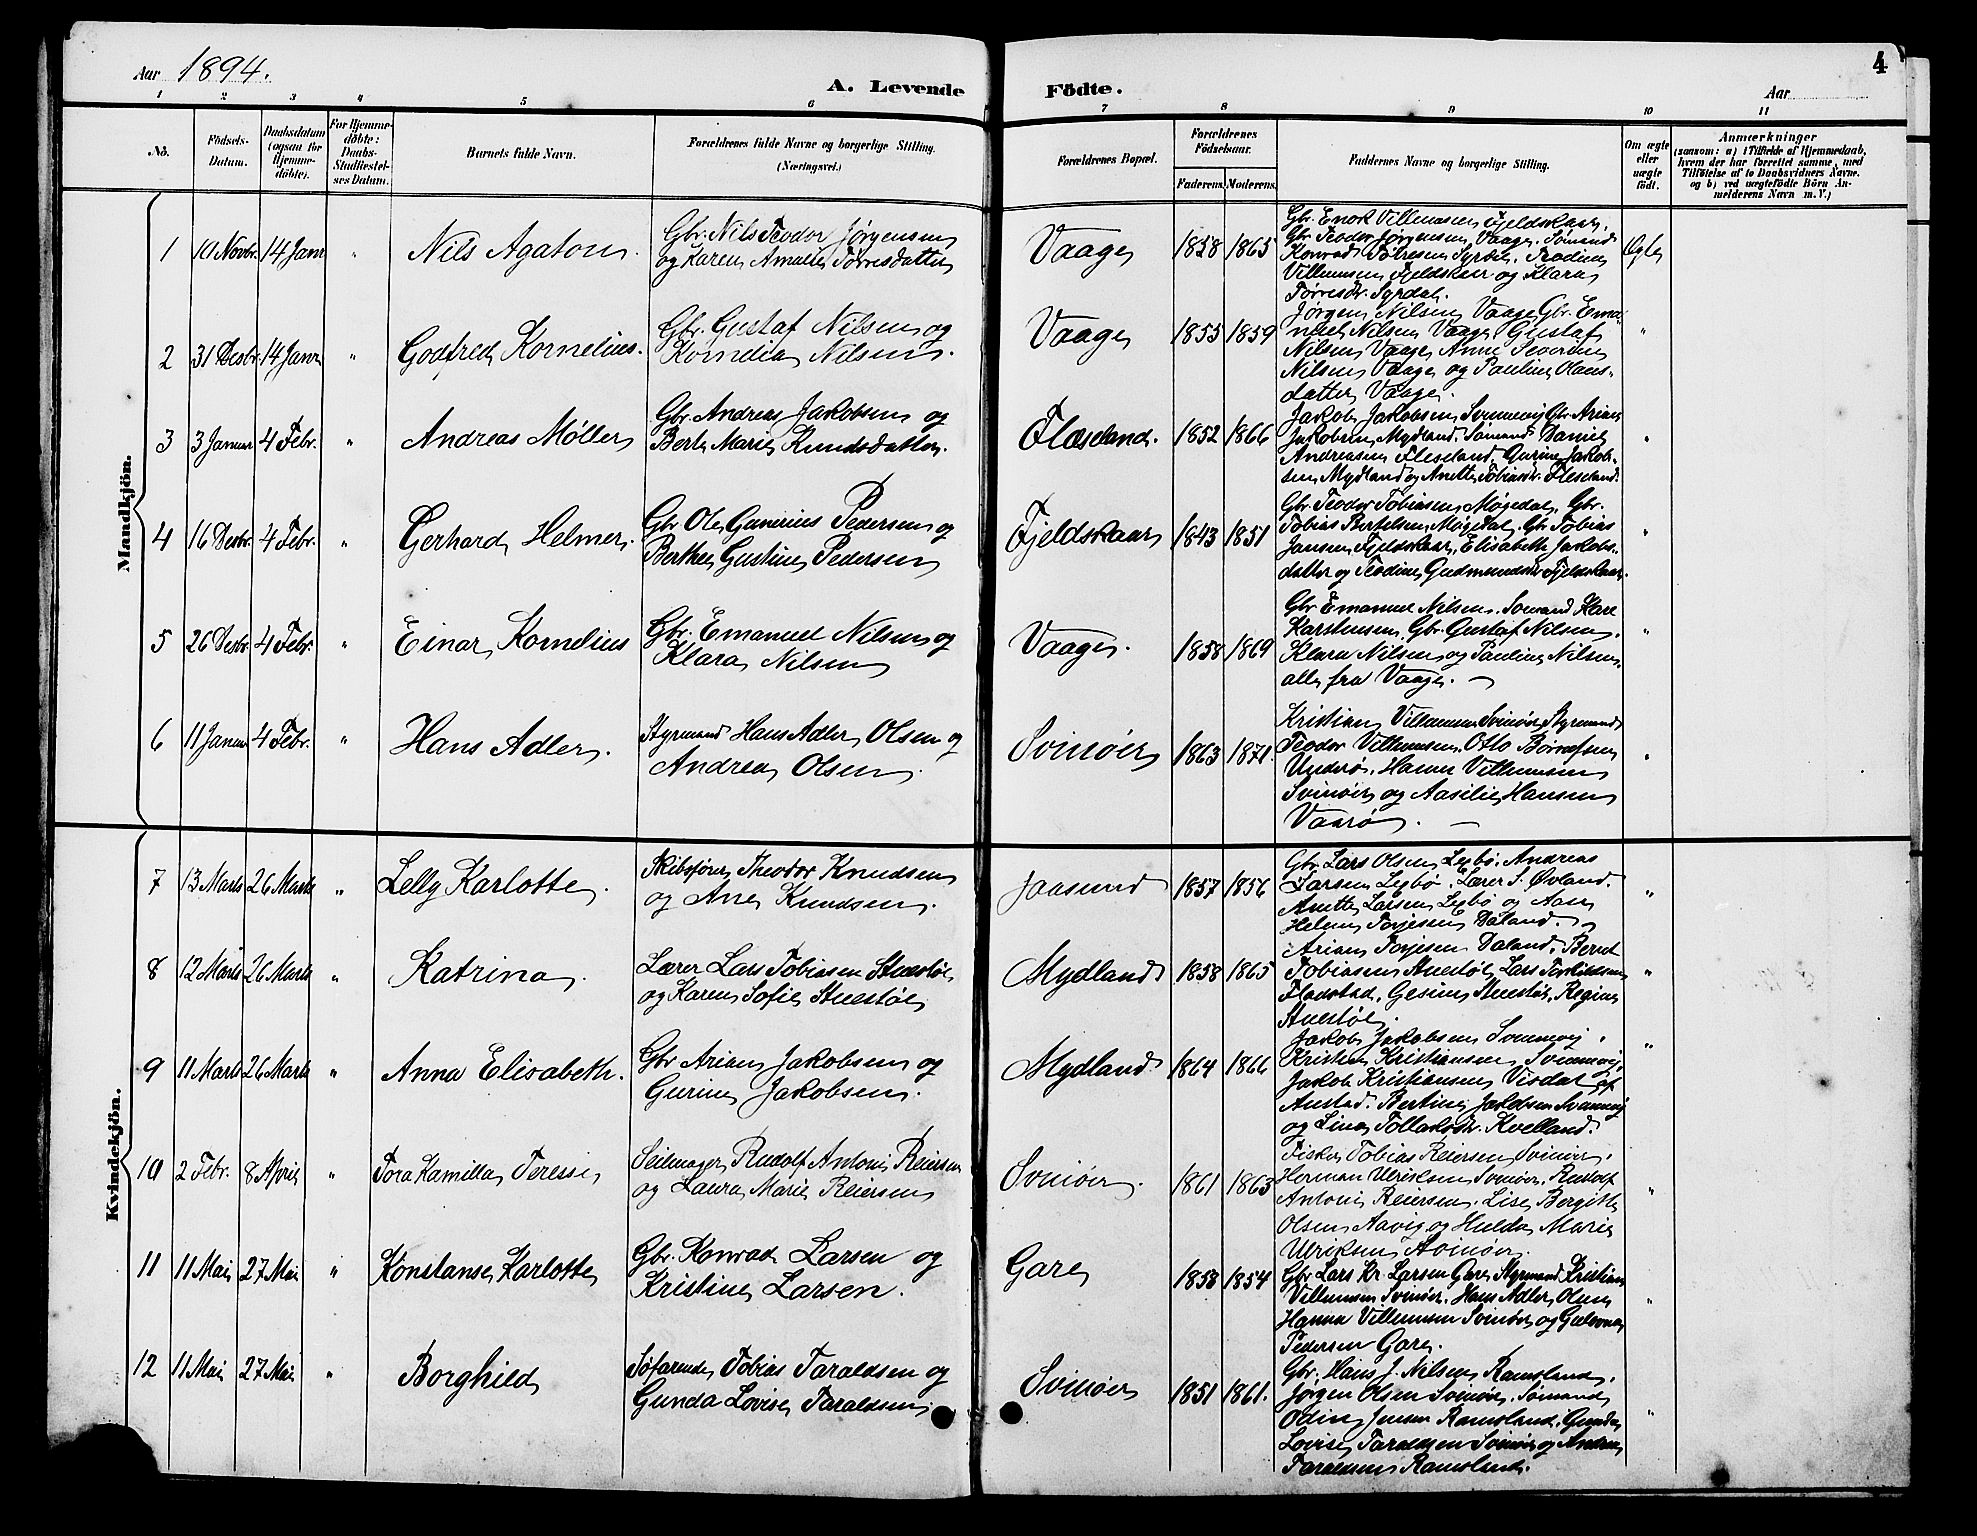 Aar 1894.
A. Levende
Födte.
4
Aar
1 2 3 4 5 6 7 8 9 10 11
No.
Födsels-
Datum.
Daabsdatum
(ogsaa for
Hjemme-
döbte).
For Hjemme-
döbte:
Daabs-
Stadfæstel-
ses Datum.
Barnets fulde Navn.
Forældrenes fulde Navne og borgerlige Stilling.
(Næringsvei.)
Forældrenes Bopæl.
Forældrenes
Födselsaar.
Faderens. Moderens.
Faddernes Navne og borgerlige Stilling.
Om ægte
eller
uægte
födt.
Anmærkninger
(saasom: a) i Tilfælde af Hjemmedaab,
hvem der har forrettet samme, med
Tilföielse af to Daabsvidners Navne.
og b) ved uægtefödte Börn An-
melderens Navn m. V.)
Mandkjön.
1 10 Novbr. 14 Janr " Nils Agaton.
Gbr. Nils Teodor Jørgensen
og Karen Amalie Tørresdatter
Vaage 1858 1865
Gbr. Enok Villumsen Fjeldskaar.
Gbr. Teodor Jørgensen, Vaage. Sømand
Konrad Tørresen Syrdal. Teodine
Villumsen Fjeldskaar og Klara
Tørresdr. Syrdal.
Ægte
2 31 Desbr. 14 Janr " Godfred Kornelius.
Gbr. Gustaf Nilsen og
Kornelia Nilsen.
Vaage 1855 1859
Jørgen Nilsen Vaage Gbr. Ema-
nuel Nilsen Vaage, Gustaf
Nilsen Vaage, Anne Severine
Nilsen Vaage og Pauline Olaus-
datter Vaage.
"
3 3 Januar 4 Febr. " Andreas Møller
Gbr. Andreas Jakobsen og
Berte Marie Knudsdatter.
Fleseland. 1852 1866
Jakob Jakobsen Svennevig Gbr. Arian
Jakobsen Mydland. Sømand Daniel
Andreasen Fleseland. Gurine Jakob-
sen Mydland og Anette Tobiasdr. Fleseland.
"
4 16 Desbr. 4 Febr. " Gerhard Helmer.
Gbr Ole Gunerius Pedersen og
Berthe Gustine Pedersen
Fjeldskaar 1843 1851
Gbr. Teodor Tobiasen Møgedal, Gbr.
Tobias Bertelsen Møgedal, Gbr. Tobias
Jansen Fjeldskaar, Elisabeth Jakobs-
datter og Teodine Gudmundsdr. Fjeldskaar.
"
5 26 Desbr. 4 Febr. " Einar Kornelius
Gbr. Emanuel Nilsen og
Klara Nilsen
Vaage. 1858 1869
Gbr. Emanuel Nilsen. Sømand Karl
Karstensen. Gbr. Gustaf Nilsen.
Klara Nilsen og Pauline Nilsen,
alle fra Vaage. —
"
6 11 Januar 4 Febr. " Hans Adler.
Styrmand Hans Adler Olsen og
Andrea Olsen.
Svinøer 1863 1871.
Kristian Villumsen Svinøer, Styrmand
Teodor Villumsen. Otto Børresen
Underø. Hanne Villumsen
Svinøer og Aasilie Hansen
Vaarø. —
"
Kvindekjön.
7 13 Marts 26 Marts " Lelly Karlotte.
Skibsfører Theodor Knudsen
og Ane Knudsen.
Jaasund 1857 1856
Gbr. Lars Olsen Legbø. Andreas
Larsen Legbø. Lærer S. Øvland.
Anette Larsen Legbø og Aase
Helene Torjesen Daland.
"
8 12 Marts 26 Marts " Katrina.
Lærer Lars Tobiasen Stuestøl
og Karen Sofie Stuestøl
Mydland 1858 1865
Arian Torjesen Daland. Bernt
Tobiasen Stuestøl, Lars
Fladstad. Gesine Stuestøl. Regine
Stuestøl.
"
9 11 Marts 26 Marts " Anna Elisabeth.
Gbr Arian Jakobsen og
Gurine Jakobsen.
Mydland 1864 1866
Jakob Jakobsen Svennevig.
Kristen Kristiansen Svennevig,
Jakob Kristiansen Visdal af
Austad. Bertine Jakobsen Svennevig
og Lina Tollaksdr. Kvelland.
"
10 2 Febr. 8 April " Tora Kamilla Teressi
Seilmager Rudolf Antoni Reiersen
og Laura Marie Reiersen
Svinøer. 1861 1863
Fisker Tobias Reiersen Svinøer.
Herman Ulriksen Svinøer, Rudolf
Antoni Reiersen. Lise Bergitte
Olsen Aavig og Hulda Marie
Ulriksen Svinøer.
"
11 11 Mai 27 Mai " Konstanse Karlotte
Gbr. Konrad Larsen og
Kristine Larsen.
Gare 1858 1854
Gbr Lars Kr. Larsen Gare Styrmand Kristian
Villumsen Svinøer. Hans Adler Olsen
Hanna Villumsen Svinøer og
Pedersen Gare.
"
12 11 Mai 27 Mai " Borghild
Søfarende Tobias Taraldsen og
Gunda Lovise Taraldsen
Svinøer 1851 1861.
Gbr. Hans J. Nilsen Ramsland.
Jørgen Olsen Svinøer. Sømand
Odin Jensen Ramsland. Gunda
Lovise Taraldsen Svinøer og Andrea
Taraldsen Ramsland.
"